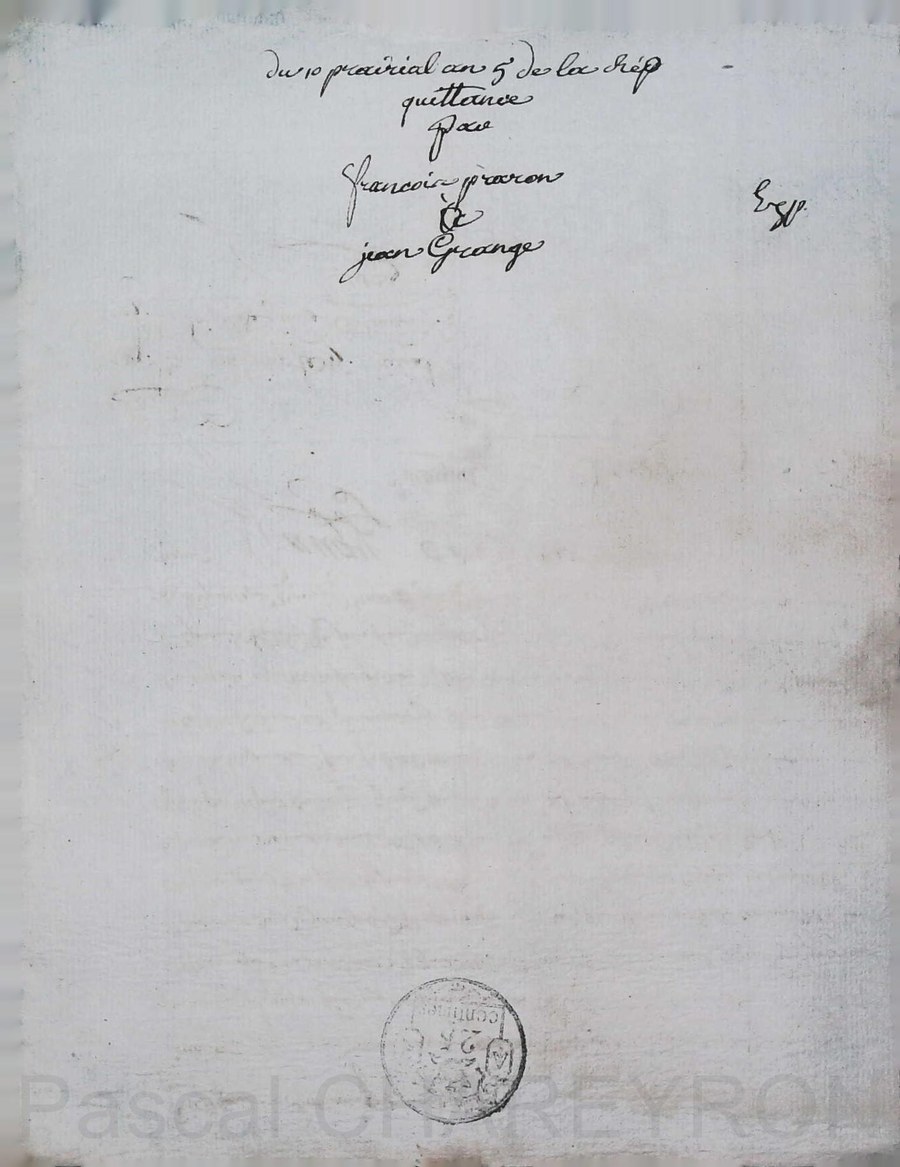 du 10 prairial an 5 de la rép
quittance
par
francois praron
à
jean Grange
Exp.
centimes
25
Pascal CHAREYRON